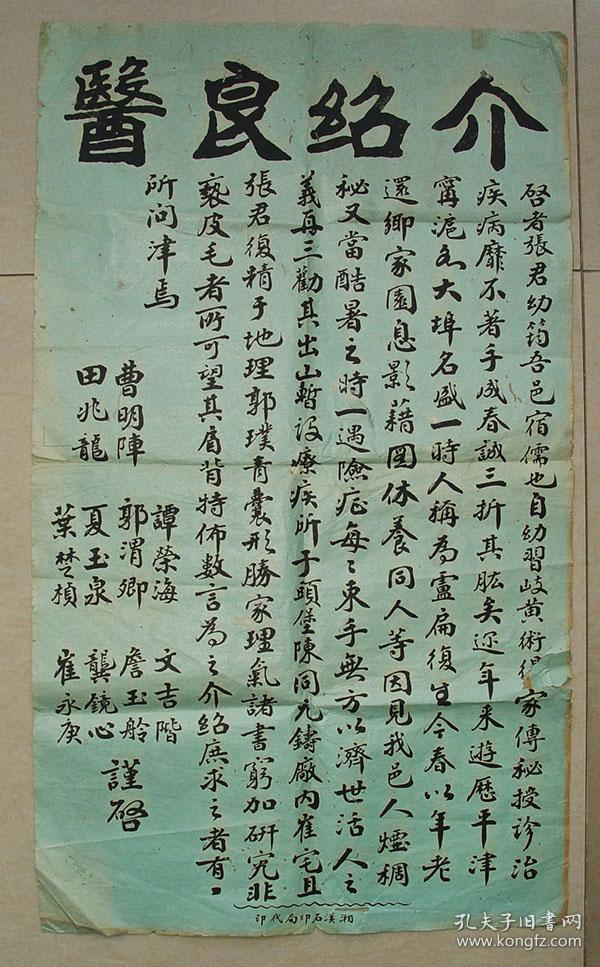 介紹良醫
啓者張君幼筠吾邑宿儒也自幼習岐黄術得家傳秘授診治
疾病靡不著手成春誠三折其肱矣迩年来遊歷平津
甯滬各大埠名盛一時人稱為盧扁復生今春以年老
還鄉家園息影藉圖休養同人等因見我邑人煙稠
秘又當酷暑之時一遇險症每〻束手無方以濟世活人之
義再三勸其出山暫設療疾所于頭堡陳同九鑄廠内崔宅且
張君復精于地理郭璞青囊形勝家理氣諸書窮加研究非
褻皮毛者所可望其肩背特佈數言為之介紹庶求之者有〻
所问津焉
譚榮海 文吉階
曹明陣 郭渭卿 詹玉舲
田兆龍 夏玉泉 龔鏡心
葉楚楨 崔永庚
謹啓
湘漢石印局代印
孔夫子旧書网
www.kongfz.com